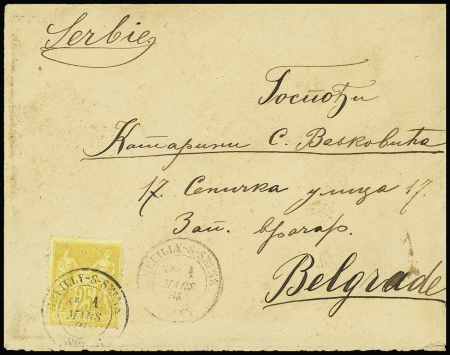 Serbie
Госпођи
Катарини С. Васковића
17. Сеничка улица 17.
Зап. врачар.
Belgrade
POSTES
25
NEUILLY-S-SEINE
1
MARS
NEUILLY-S-SEINE
1
MARS